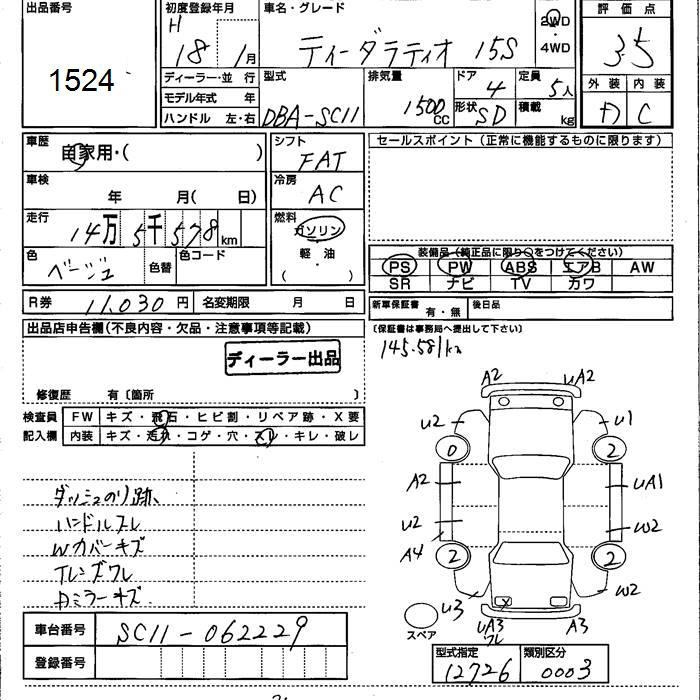 出品番号
1524
初度登録年月
H 18 年 1月
車名・グレード
ティーダラティオ 15S
2WD
4WD
評価点
3.5
外装 内装
D C
ディーラー・並 行
モデル年式 年
ハンドル 左・右
型式
DBA-SC11
排気量
1500cc
ドア
4
形状
SD
定員
5人
積載
kg
車歴
自家用・( )
車検
年 月( 日)
走行
14万5千578km
色
ベージュ
色替
色コード
シフト
FAT
冷房
AC
燃料
ガソリン
軽・油
( )
セールスポイント(正常に機能するものに限ります)
装備品(純正品に限り○をつけてください)
PS PW ABS エアB AW
SR ナビ TV カワ
R券 11,030円 名変期限 月 日
新車保証書 有・無 後日品
(保証書は事務局へ提出して下さい)
145.581km
出品店申告欄(不良内容・欠品・注意事項等記載)
ディーラー出品
修復歴 有〔箇所 〕
検査員
記入欄
FW キズ・飛石・ヒビ割・リペア跡・X要
内装 キズ・汚れ・コゲ・穴・スレ・キレ・破レ
ダッシュのり跡、
ハンドルスレ
Wカバーキズ
Tレンズワレ
Dミラーキズ
A2 UA2
U2 U1
0 2
A2 UA1
U2 W2
A4
2 2
U3 W2
スペア
UA3 A3
ワレ
車台番号 SC11-062229
登録番号
型式指定 類別区分
12726 0003